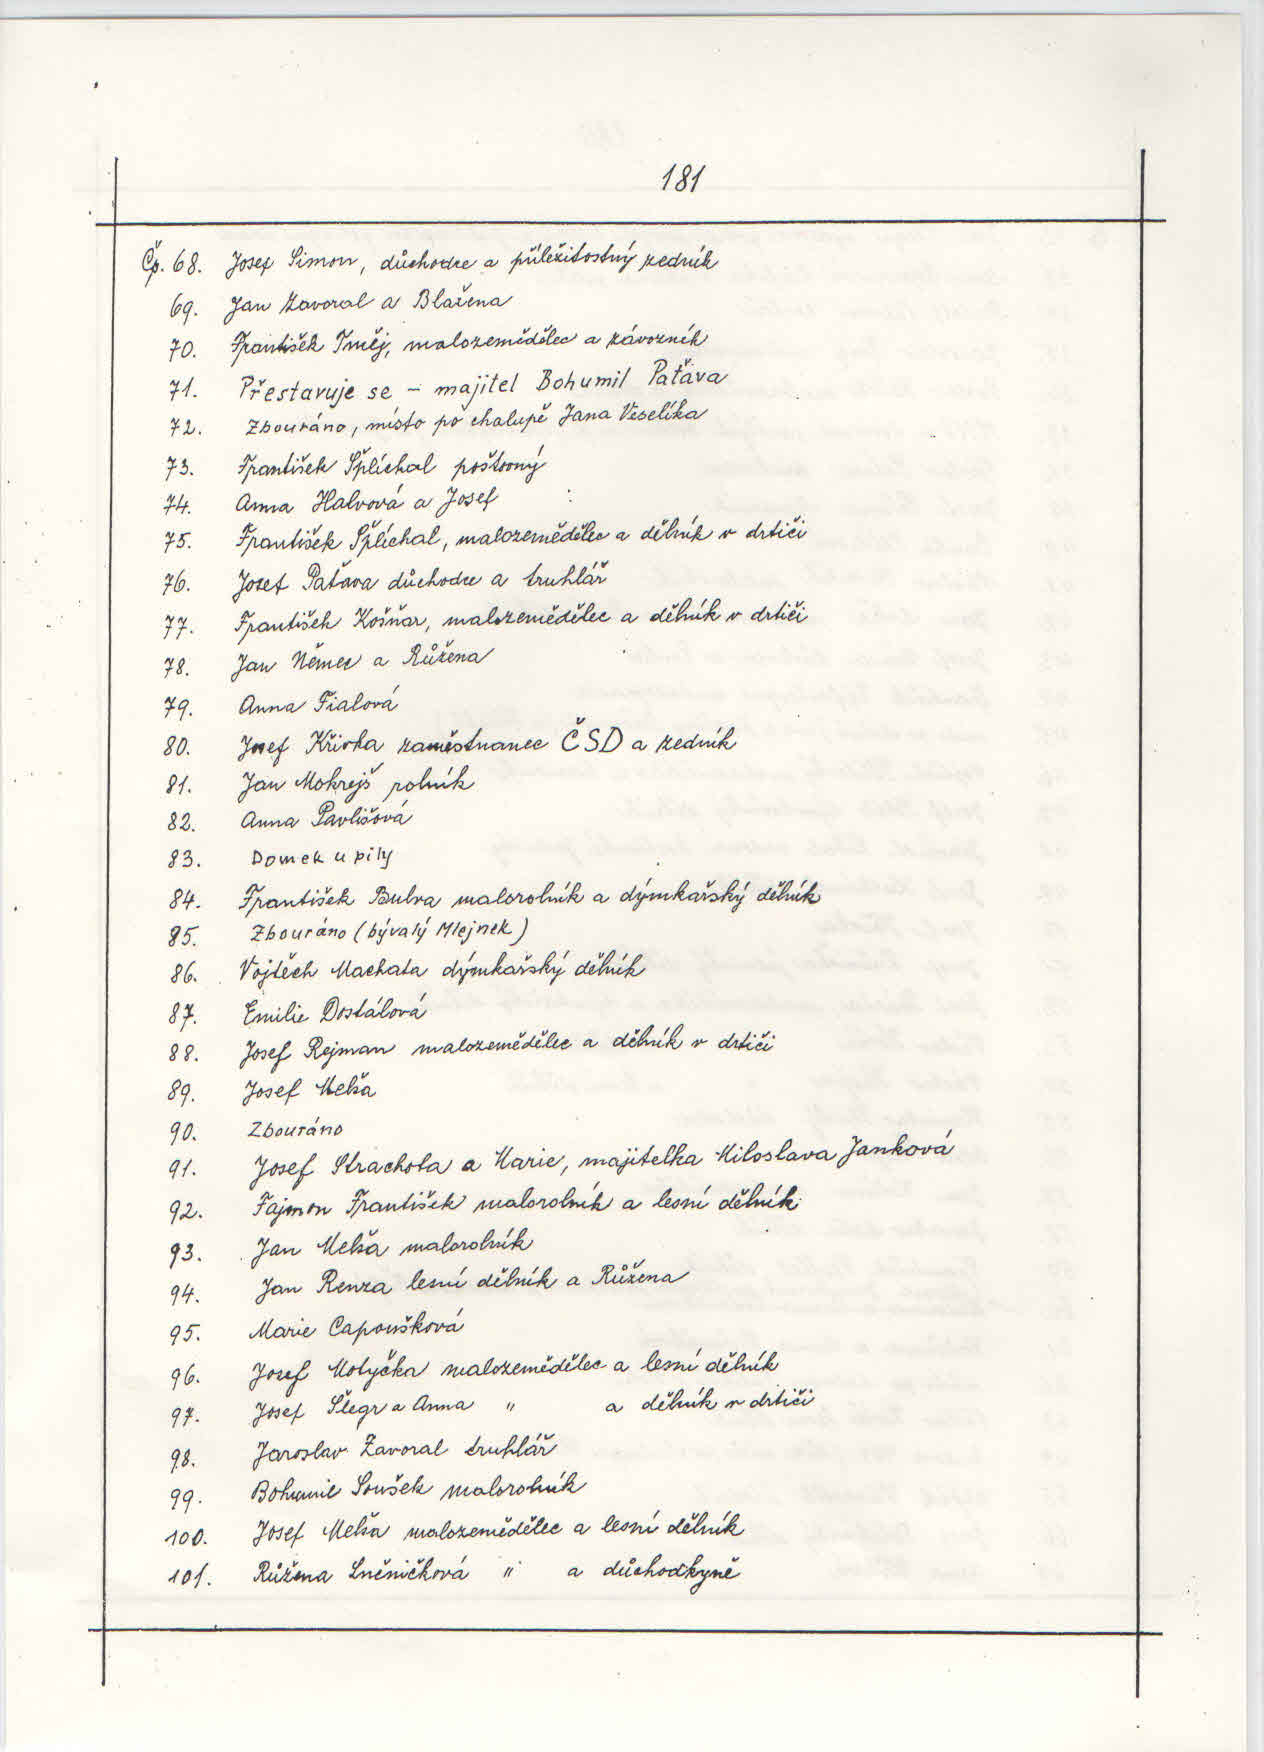 181
Čp. 68. Josef Simon, důchodce a příležitostný zedník
69. Jan Zavoral a Blažena
70. František Tměj, malozemědělec a závozník
71. Přestavuje se – majitel Bohumil Paťava
72. Zbouráno, místo po chalupě Jana Veselíka
73. František Šplíchal poštovný
74. Anna Halvová a Josef
75. František Šplíchal, malozemědělec a dělník v drtiči
76. Josef Paťava důchodce a truhlář
77. František Košňar, malozemědělec a dělník v drtiči
78. Jan Němec a Růžena
79. Anna Fialová
80. Josef Křivka zaměstnanec ČSD a zedník
81. Jan Mokrejš rolník
82. Anna Pavlišová
83. Domek u pily
84. František Bulva malorolník a dýmkařský dělník
85. Zbouráno (bývalý Mlejnek)
86. Vojtěch Machata dýmkařský dělník
87. Emilie Dostálová
88. Josef Rejman malozemědělec a dělník v drtiči
89. Josef Melša
90. Zbouráno
91. Josef Strachota a Marie, majitelka Miloslava Janková
92. Fajmon František malorolník a lesní dělník
93. Jan Melša malorolník
94. Jan Renza lesní dělník a Růžena
95. Marie Capoušková
96. Josef Motyčka malozemědělec a lesní dělník
97. Josef Šlegr a Anna " a dělník v drtiči
98. Jaroslav Zavoral truhlář
99. Bohumil Soušek malorolník
100. Josef Melša malozemědělec a lesní dělník
101. Růžena Lněničková " a důchodkyně